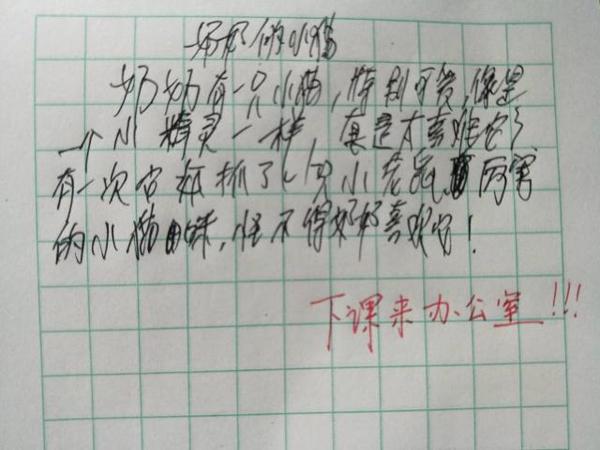 奶奶的小猫
奶奶有一只小猫，特别可爱，像是
一个小精灵一样，真是太喜欢它了
有一次它抓了一只小老鼠，厉害
的小猫咪，怪不得奶奶喜欢它！
下课来办公室!!!